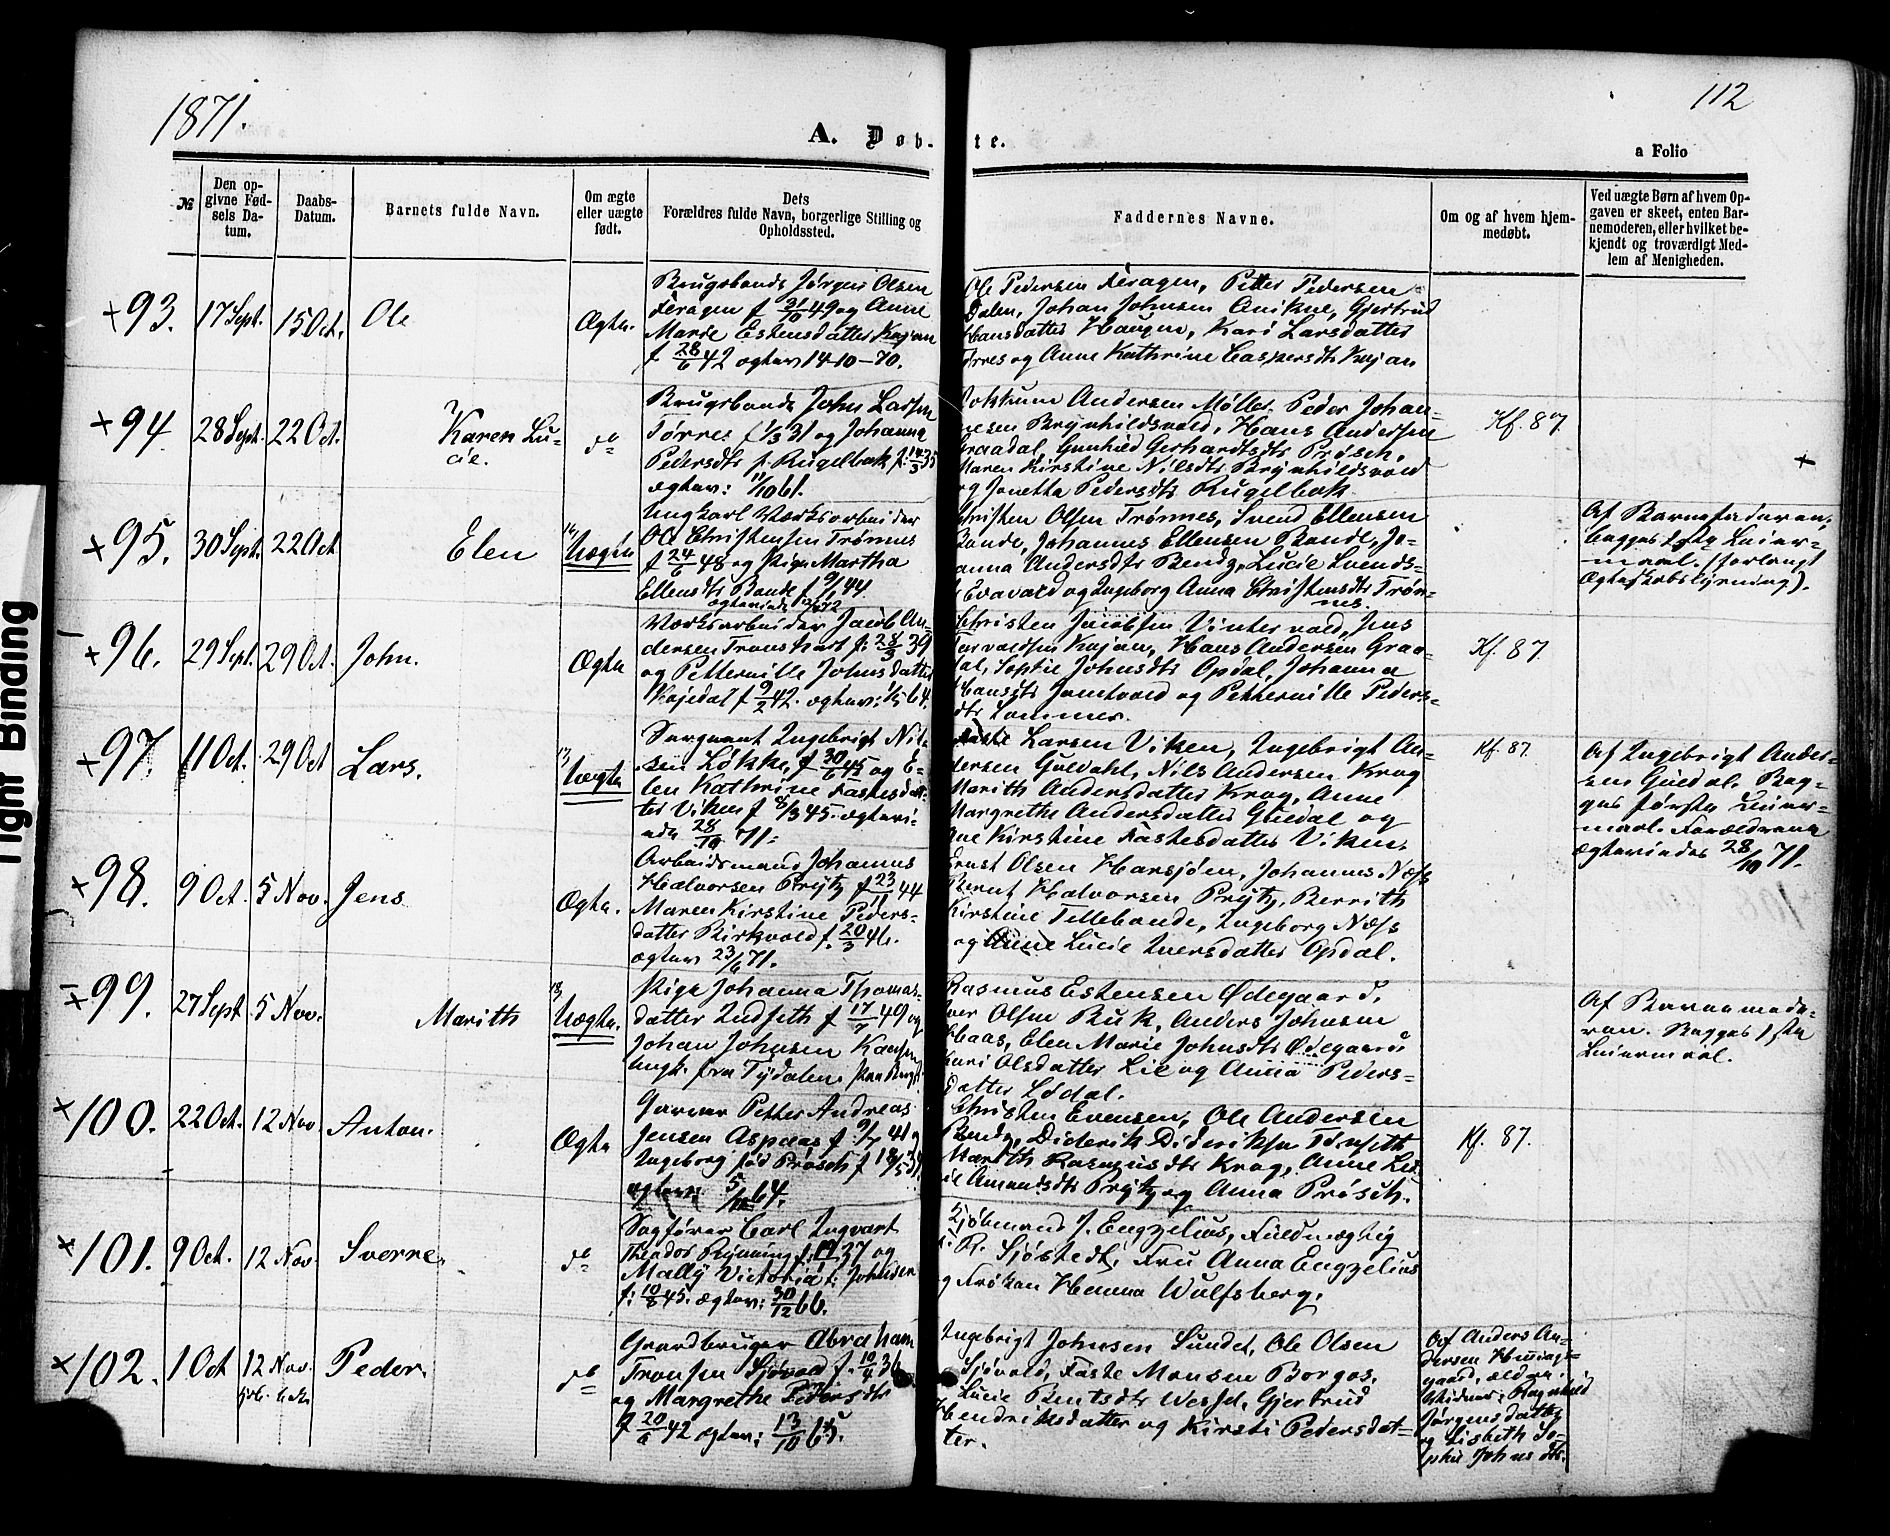 1871.
112
A. Døb-
te.
a Folio
№
Den op-
givne Fød-
sels Da-
tum.
Daabs-
Datum.
Barnets fulde Navn.
Om ægte
eller uægte
født.
Dets
Forældres fulde Navn, borgerlige Stilling og
Opholdssted.
Faddernes Navne.
Om og af hvem hjem-
medøbt.
Ved uægte Børn af hvem Op-
gaven er skeet, enten Bar-
nemoderen, eller hvilket be-
kjendt og troværdigt Med-
lem af Menigheden.
+ 93. 17 Sept. 15 Oct. Ole Ægte.
Brugsbonde Jørgen Olsen
Feragen f 31/10 49 og Anne
Marie Estensdatter Kojan
f 28/6 42 ægtev 14-10-70.
Ole Pedersen Feragen, Petter Pedersen
Dalen, Johan Johnsen Anikne, Gjertrud
Hansdatter Haugen, Kari Larsdatter
Tørres og Anne Kathrine Caspersdtr Kojan
+ 94. 28 Sept. 22 Oct. Karen Lu-
cie. do
Brugsbonde John Larsen
Tørres f 1/3 31 og Johanna
Pedersdtr f. Rugelbæk f. 14/3 35
ægtev: 11/10 61.
Jokkum Andersen Møller, Peder Johan-
nesen Brynhildsvold, Hans Andersen
Graadal, Gunhild Gerhardtsdtr Prøsch,
Maren Kirstine Nilsdtr Brynhildsvold
og Jonetta Pedersdtr Rugelbæk
Kf. 87
+
+ 95. 30 Sept. 22 Oct Elen Uægte
Ungkarl Værksarbeider
Ole Christensen Trønnes
f 24/6 48 og Pige Martha
Ellensdtr Bonde f 9/1 44
Christen Olsen Trønnes, Svend Ellensen
Bonde, Johannes Ellensen Bonde, Jo-
hanna Andersdtr Bendz, Lucie Svends-
Evavold og Ingeborg Anna Christensdtr Trøn-
nes.
Af Barnefaderen,
begges 1ste Leier-
maal. (forlangt
Ægteskabslysning).
+ 96. 29 Sept. 29 Oct. John. Ægte
Værksarbeider Jacob An-
dersen Tronshart f: 28/3 39
og Petternille Johnsdatter
f 9/2 42. ægtev: 1/5 64.
Christen Jacobsen Vintervold, Jens
Torvaldsen Kojan, Hans Andersen Graa-
dal, Sophie Johnsdtr Opdal, Johanna
Hansdtr Jamtvold og Petternille Peders-
dtr Lommen.
Kf. 87.
+ 97. 11 Oct. 29 Oct Lars. Uægte
Sergeant Ingebrigt Nil-
sen Løkke, f 30/6 45 og E-
len Kathrine Fastesdat-
ter Viken f 8/3 45. ægtevi-
ede 28/10 71.
Faste Larsen Viken, Ingebrigt An-
dersen Guldahl, Nils Andersen Krog
Marith Andersdatter Krog, Anne
Margrethe Andersdatter Guldal og
Kirstine Fastesdatter Viken.
Kf. 87
Af Ingebrigt Ander-
sen Guldal. Beg-
ges første Leier-
maal. Forældrene
Ægteviedes 28/10 71.
+ 98. 9 Oct. 5 Nov. Jens Ægte.
Arbeidsmand Johannes
Halvorsen Prytz f 23/11 44
Maren Kirstine Peders-
datter Birkvold f. 20/3 46.
ægtev 23/6 71.
Ernst Olsen Harsjøen, Johannes Næss
Bernt Halvorsen Prytz, Berrith
Kirstine Tillebonde, Ingeborg Næss
og Lucie Iversdatter Opdal.
+ 99. 27 Sept 5 Nov. Marith Uægte.
Pige Johanna Thomas-
datter Indseth f 17/7 49 og
Johan Johnsen
ungk. fra Tydalen
Rasmus Estensen Ødegaard,
Iver Olsen Buk, Anders Johnsen
Haas, Elen Marie Johnsdtr Ødegaard
Kari Olsdatter Lie og Anna Peders-
datter Lødal.
Af Barnemode-
ren. Begges 1ste
Leiermaal.
+ 100. 22 Oct. 12 Nov. Anton. Ægte
Garver Petter Andreas
Jensen Aspaas f 9/7 41 og
Ingeborg fød Prøsch f 18/5 39
ægtev 5/12 64.
Christen Evensen, Ole Andersen
Bendz, Diderik Dideriksen Tønseth
Marith Rasmusdtr Krog, Anne Lu-
cie Amundsdtr Prytz og Anna Prøsch.
Kf. 87.
+ 101. 9 Oct. 12 Nov Sverre. do
Sagfører Carl Ingvart
Theodor Rynning f: 37 og
Mally Victoria f: Johnsen
f: 10/8 45. ægtev: 30/12 66.
Kjøbmand J. Engzelius, Fuldmægtig
R. Sjøstedt, Fru Anna Engzelius
og Frøken Hanna Wulfsberg.
+ 102. 1 Oct 12 Nov. Peder. do
Graadbruger Abraham
Tronsen Sjøvold f. 10/4 36
og Margrethe Pedersdtr
f 20/6 42 ægtev: 13/10 65.
Ingebrigt Johnsen Sundet, Ole Olsen
Sjøvold, Faste Monsen Borgos,
Lucie Bentsdtr Wessel, Gjertrud
Hendriksdatter og Kirsti Pedersdat-
ter.
Af Anders An-
dersen
gaard,
Ragnhild
Jørgensdatter
og Lisbeth So-
phie Johnsdtr.
Tight Binding